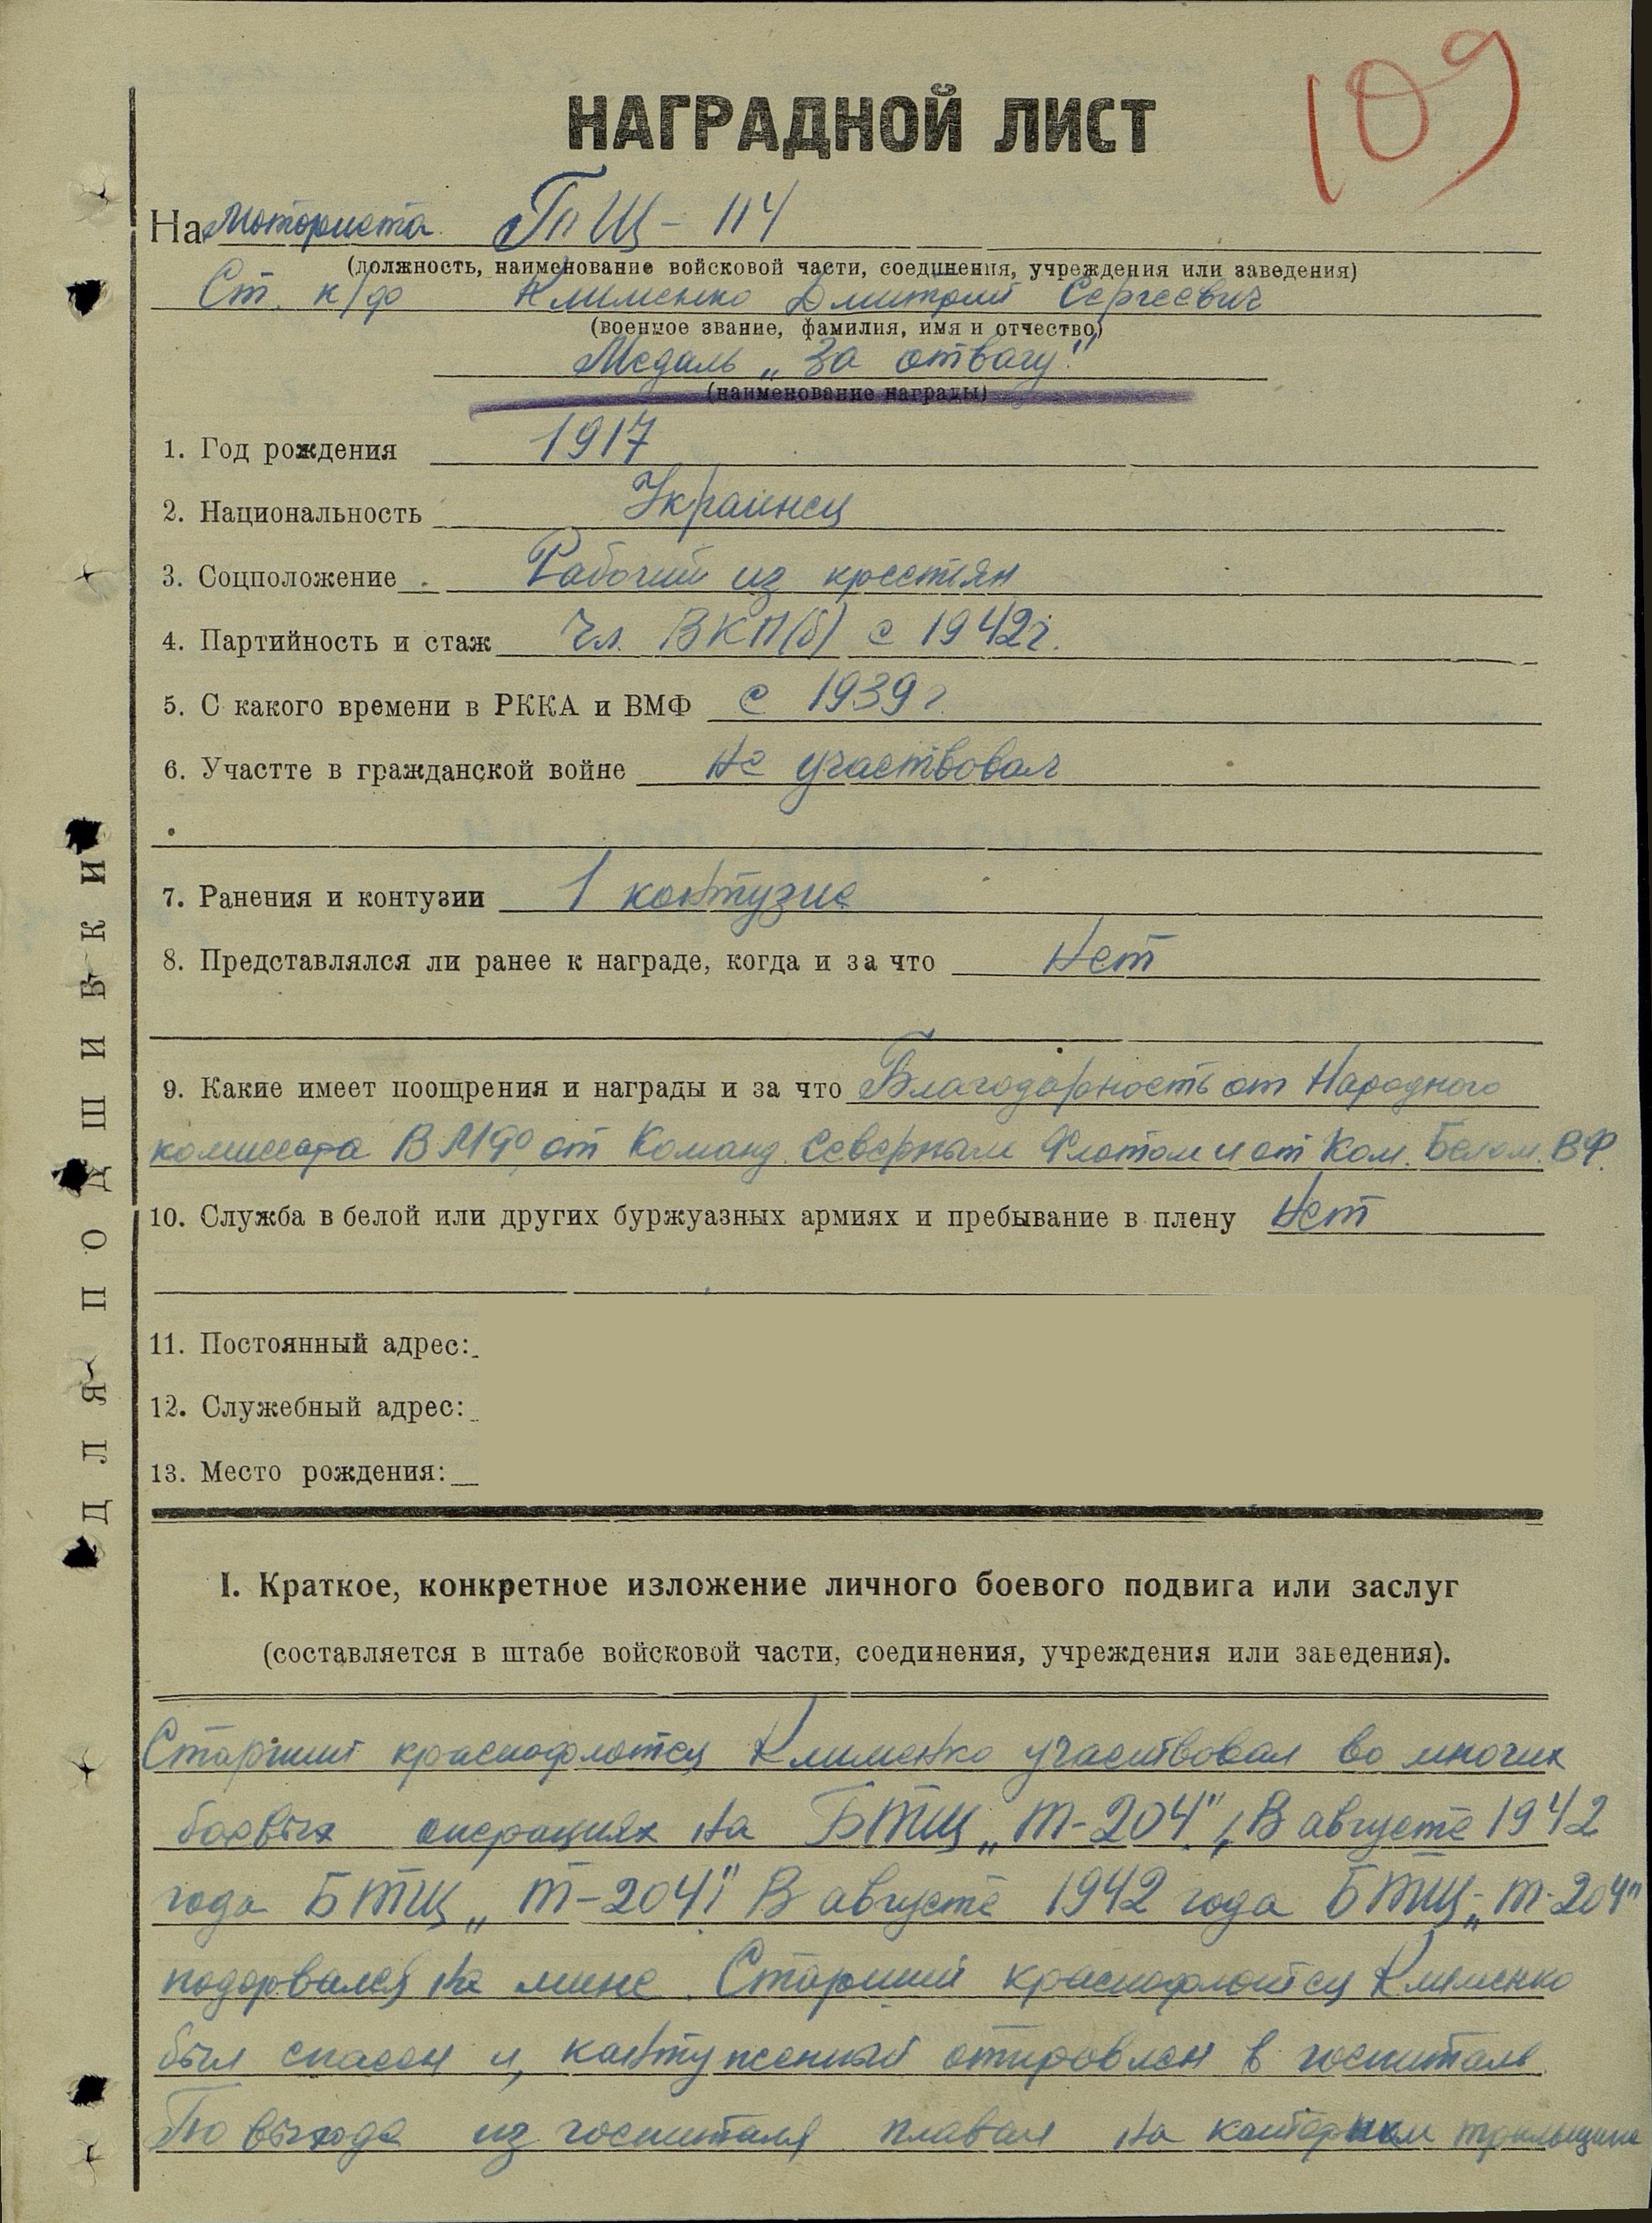 109
НАГРАДНОЙ ЛИСТ
На Моториста ТЩ - 114
(должность, наименование войсковой части, соединения, учреждения или заведения)
Ст. к/фо Клименко Дмитрий Сергеевич
(военное звание, фамилия, имя и отчество)
Медаль „За отвагу"
(наименование награды)
1. Год рождения 1917
2. Национальность Украинец
3. Соцположение Рабочий из крестьян
4. Партийность и стаж Чл. ВКП(б) с 1942г.
5. С какого времени в РККА и ВМФ с 1939г
6. Участте в гражданской войне не участвовал
7. Ранения и контузии 1 контузие
8. Представлялся ли ранее к награде, когда и за что Нет
9. Какие имеет поощрения и награды и за что Благодарность от Народного
комиссара ВМФ, от Команд. Северным Флотом и от Ком. Белом. ВФ.
10. Служба в белой или других буржуазных армиях и пребывание в плену Нет
11. Постоянный адрес:
12. Служебный адрес:
13. Место рождения:
ДЛЯ ПОДШИВКИ
I. Краткое, конкретное изложение личного боевого подвига или заслуг
(составляется в штабе войсковой части, соединения, учреждения или заведения).
Старший краснофлотец Клименко участвовал во многих
боевых операциях на БТЩ „Т-204", В августе 1942
года БТЩ „Т-204" В августе 1942 года БТЩ „Т-204"
подорвался на мине. Старший краснофлотец Клименко
был спасен и, контуженный отправлен в госпиталь
По выходе из госпиталя плавал на катерном тральщике